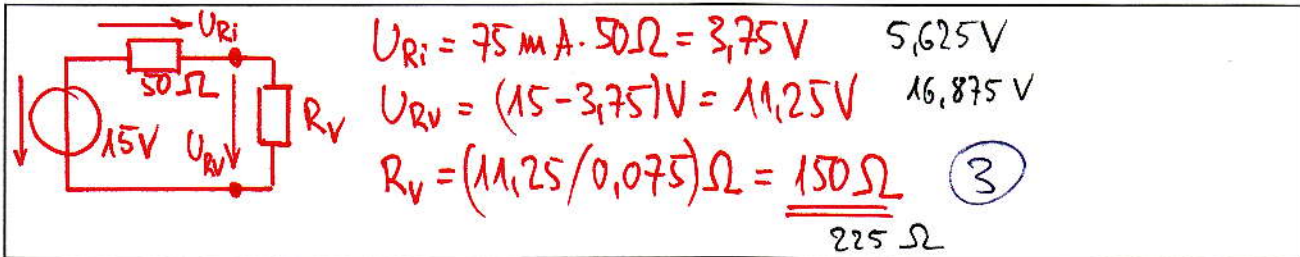 U_Ri
50Ω
15V
U_Rv
R_v
U_Ri = 75 mA · 50Ω = 3,75V 5,625V
U_Rv = (15-3,75)V = 11,25V 16,875 V
R_v = (11,25/0,075)Ω = 150Ω 3
225 Ω